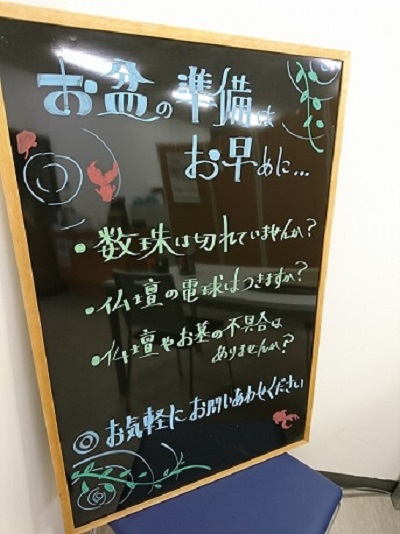 お盆の準備は
お早めに…
・数珠は切れていませんか？
・仏壇の電球はつきますか？
・仏壇やお墓の不具合は
ありませんか？
◎お気軽にお問いあわせください